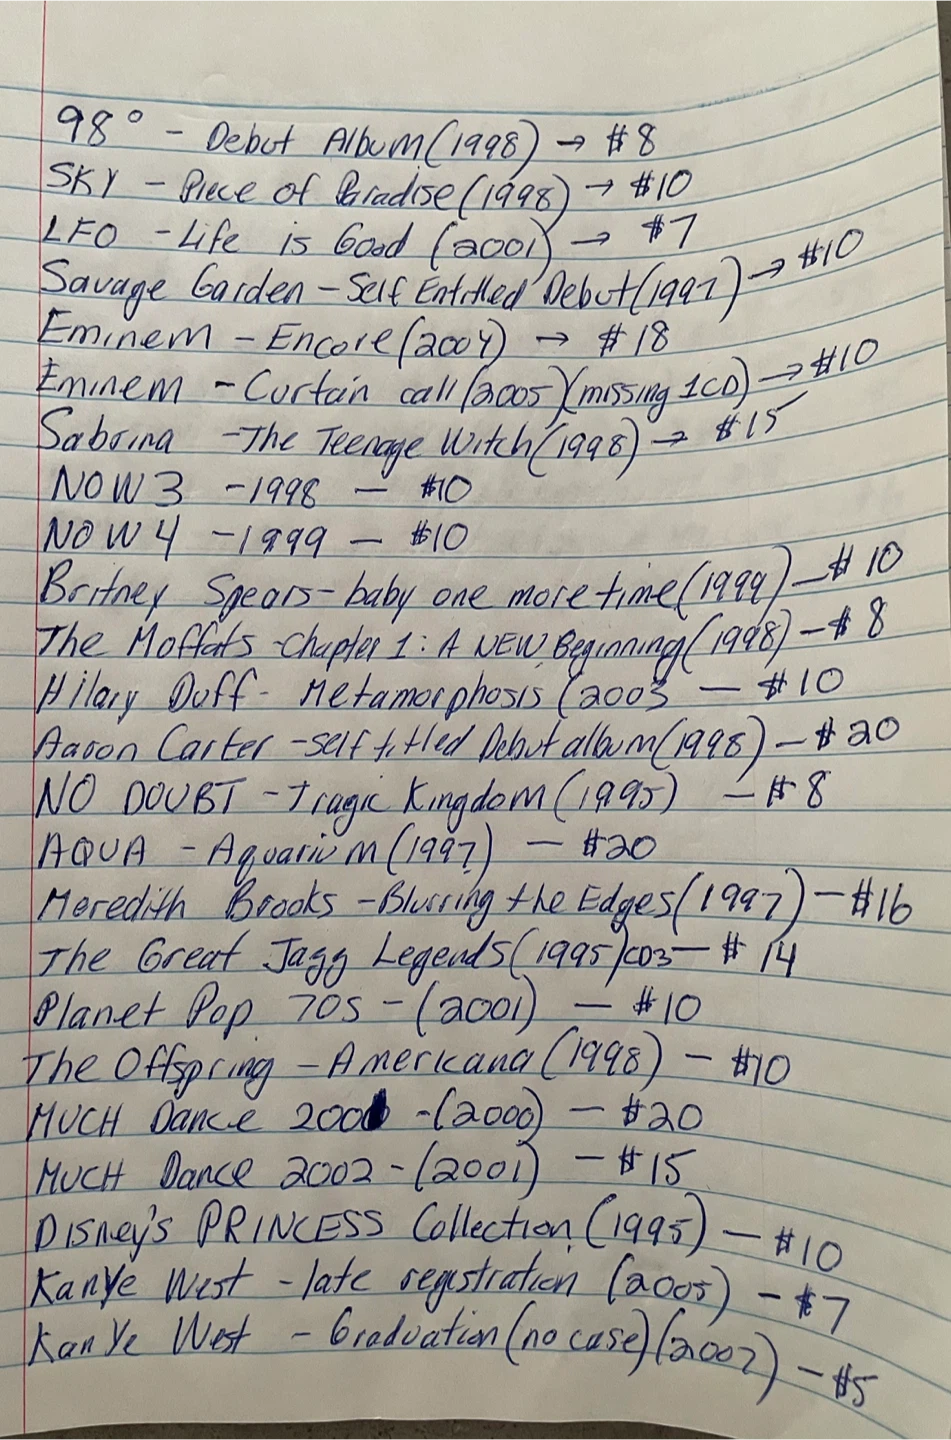 98° - Debut Album (1998) → $8
SKY - Piece of Paradise (1998) → $10
LFO - Life is Good (2001) → $7
Savage Garden - Self Entitled Debut (1997) → $10
Eminem - Encore (2004) → $18
Eminem - Curtain call (2005) (missing 1CD) → $10
Sabrina - The Teenage Witch (1998) → $15
NOW 3 - 1998 - $10
NOW 4 - 1999 - $10
Britney Spears - baby one more time (1999) - $10
The Moffats - Chapter 1: A NEW Beginning (1998) - $8
Hilary Duff - Metamorphosis (2003 - $10
Aaron Carter - self titled Debut album (1998) - $20
NO DOUBT - Tragic Kingdom (1995) - $8
AQUA - Aquarium (1997) - $20
Meredith Brooks - Blurring the Edges (1997) - $16
The Great Jazz Legends (1995) CD3 - $14
Planet Pop 70s - (2001) - $10
The Offspring - Americana (1998) - $10
MUCH Dance - (2000) - $20
MUCH Dance 2002 - (2001) - $15
Disney's PRINCESS Collection (1995) - $10
Kanye West - late registration (2005) - $7
Kanye West - Graduation (no case) (2007) - $5